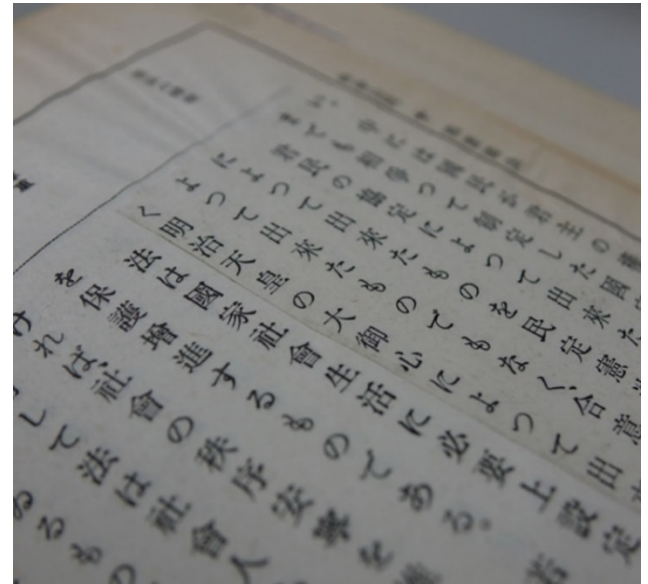 中には國民が君主の
までも相爭つて制定した國
君民の協定によつて出來た
によつて出來たものを民定憲
よつて出來たものでもなく、合意
く明治天皇の大御心によつて出
法は國家社會生活に必要上設定
を保護增進するものである。
ければ、社會の秩序安寧を
して法は社會人
ゐるもの